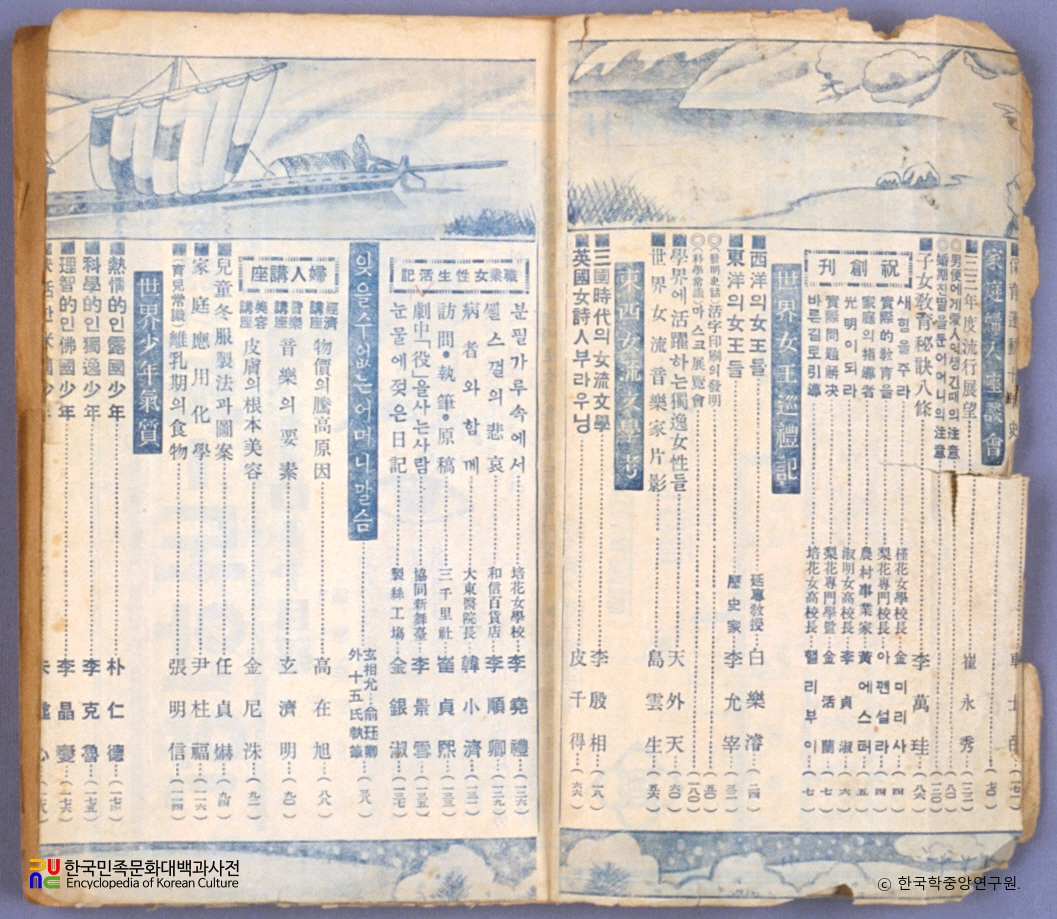 家庭婦人座談會
三三年度流行展望 崔永秀
子女敎育秘訣八條 李萬珪 (八六)
祝創刊
새힘을주라 槿花女學校長 金미리사 (四)
實際的敎育을 梨花專門校長 아펜설라 (四)
家庭의指導者 農村事業家 黃에스터 (五)
光明이되라 淑明女高校長 李貞淑 (六)
實際問題解决 梨花專門學監 金活蘭 (七)
바른길로引導 培花女高校長 헐리부이 (七)
世界女王巡禮記
西洋의女王들 延專敎授 白樂濬 (二四)
東洋의女王들 歷史家 李允宰 (三二)
(發明史話)活字印刷의發明 (五〇)
(科學常識)마스크展覽會 (八〇)
學界에活躍하는獨逸女性들 天外天 (六〇)
世界女流音樂家片影 島雲生 (五六)
東西女流文學考
三國時代의女流文學 李殷相 (一八)
英國女詩人부라우닝 皮千得 (六六)
職業女性生活記
분필가루속에서 培花女學校 李堯禮 (一三六)
껄스껄의悲哀 和信百貨店 李順卿 (一三九)
病者와함께 大東醫院長 韓小濟 (一三一)
訪問•執筆•原稿 三千里社 崔貞熙 (一三三)
劇中「役」을사는사람 協同新舞臺 李景雪 (一三五)
눈물에젖은日記 製絲工場 金銀淑 (一三七)
잊을수없는어머니말슴 玄相允…俞珏卿 外十五氏執筆 (三八)
婦人講座
經濟講座 物價의騰高原因 高在旭 (八八)
音樂講座 音樂의要素 玄濟明 (九〇)
美容講座 皮膚의根本美容 金尼洙 (九二)
兒童冬服製法과圖案 任貞爀 (九四)
家庭應用化學 尹桂福 (一一六)
(育兒常識)離乳期의食物 張明信 (一一四)
世界少年氣質
熱情的인露國少年 朴仁德 (一七四)
科學的인獨逸少年 李克魯 (一七五)
理智的인佛國少年 李晶燮 (一七六)
한국민족문화대백과사전
Encyclopedia of Korean Culture
© 한국학중앙연구원.